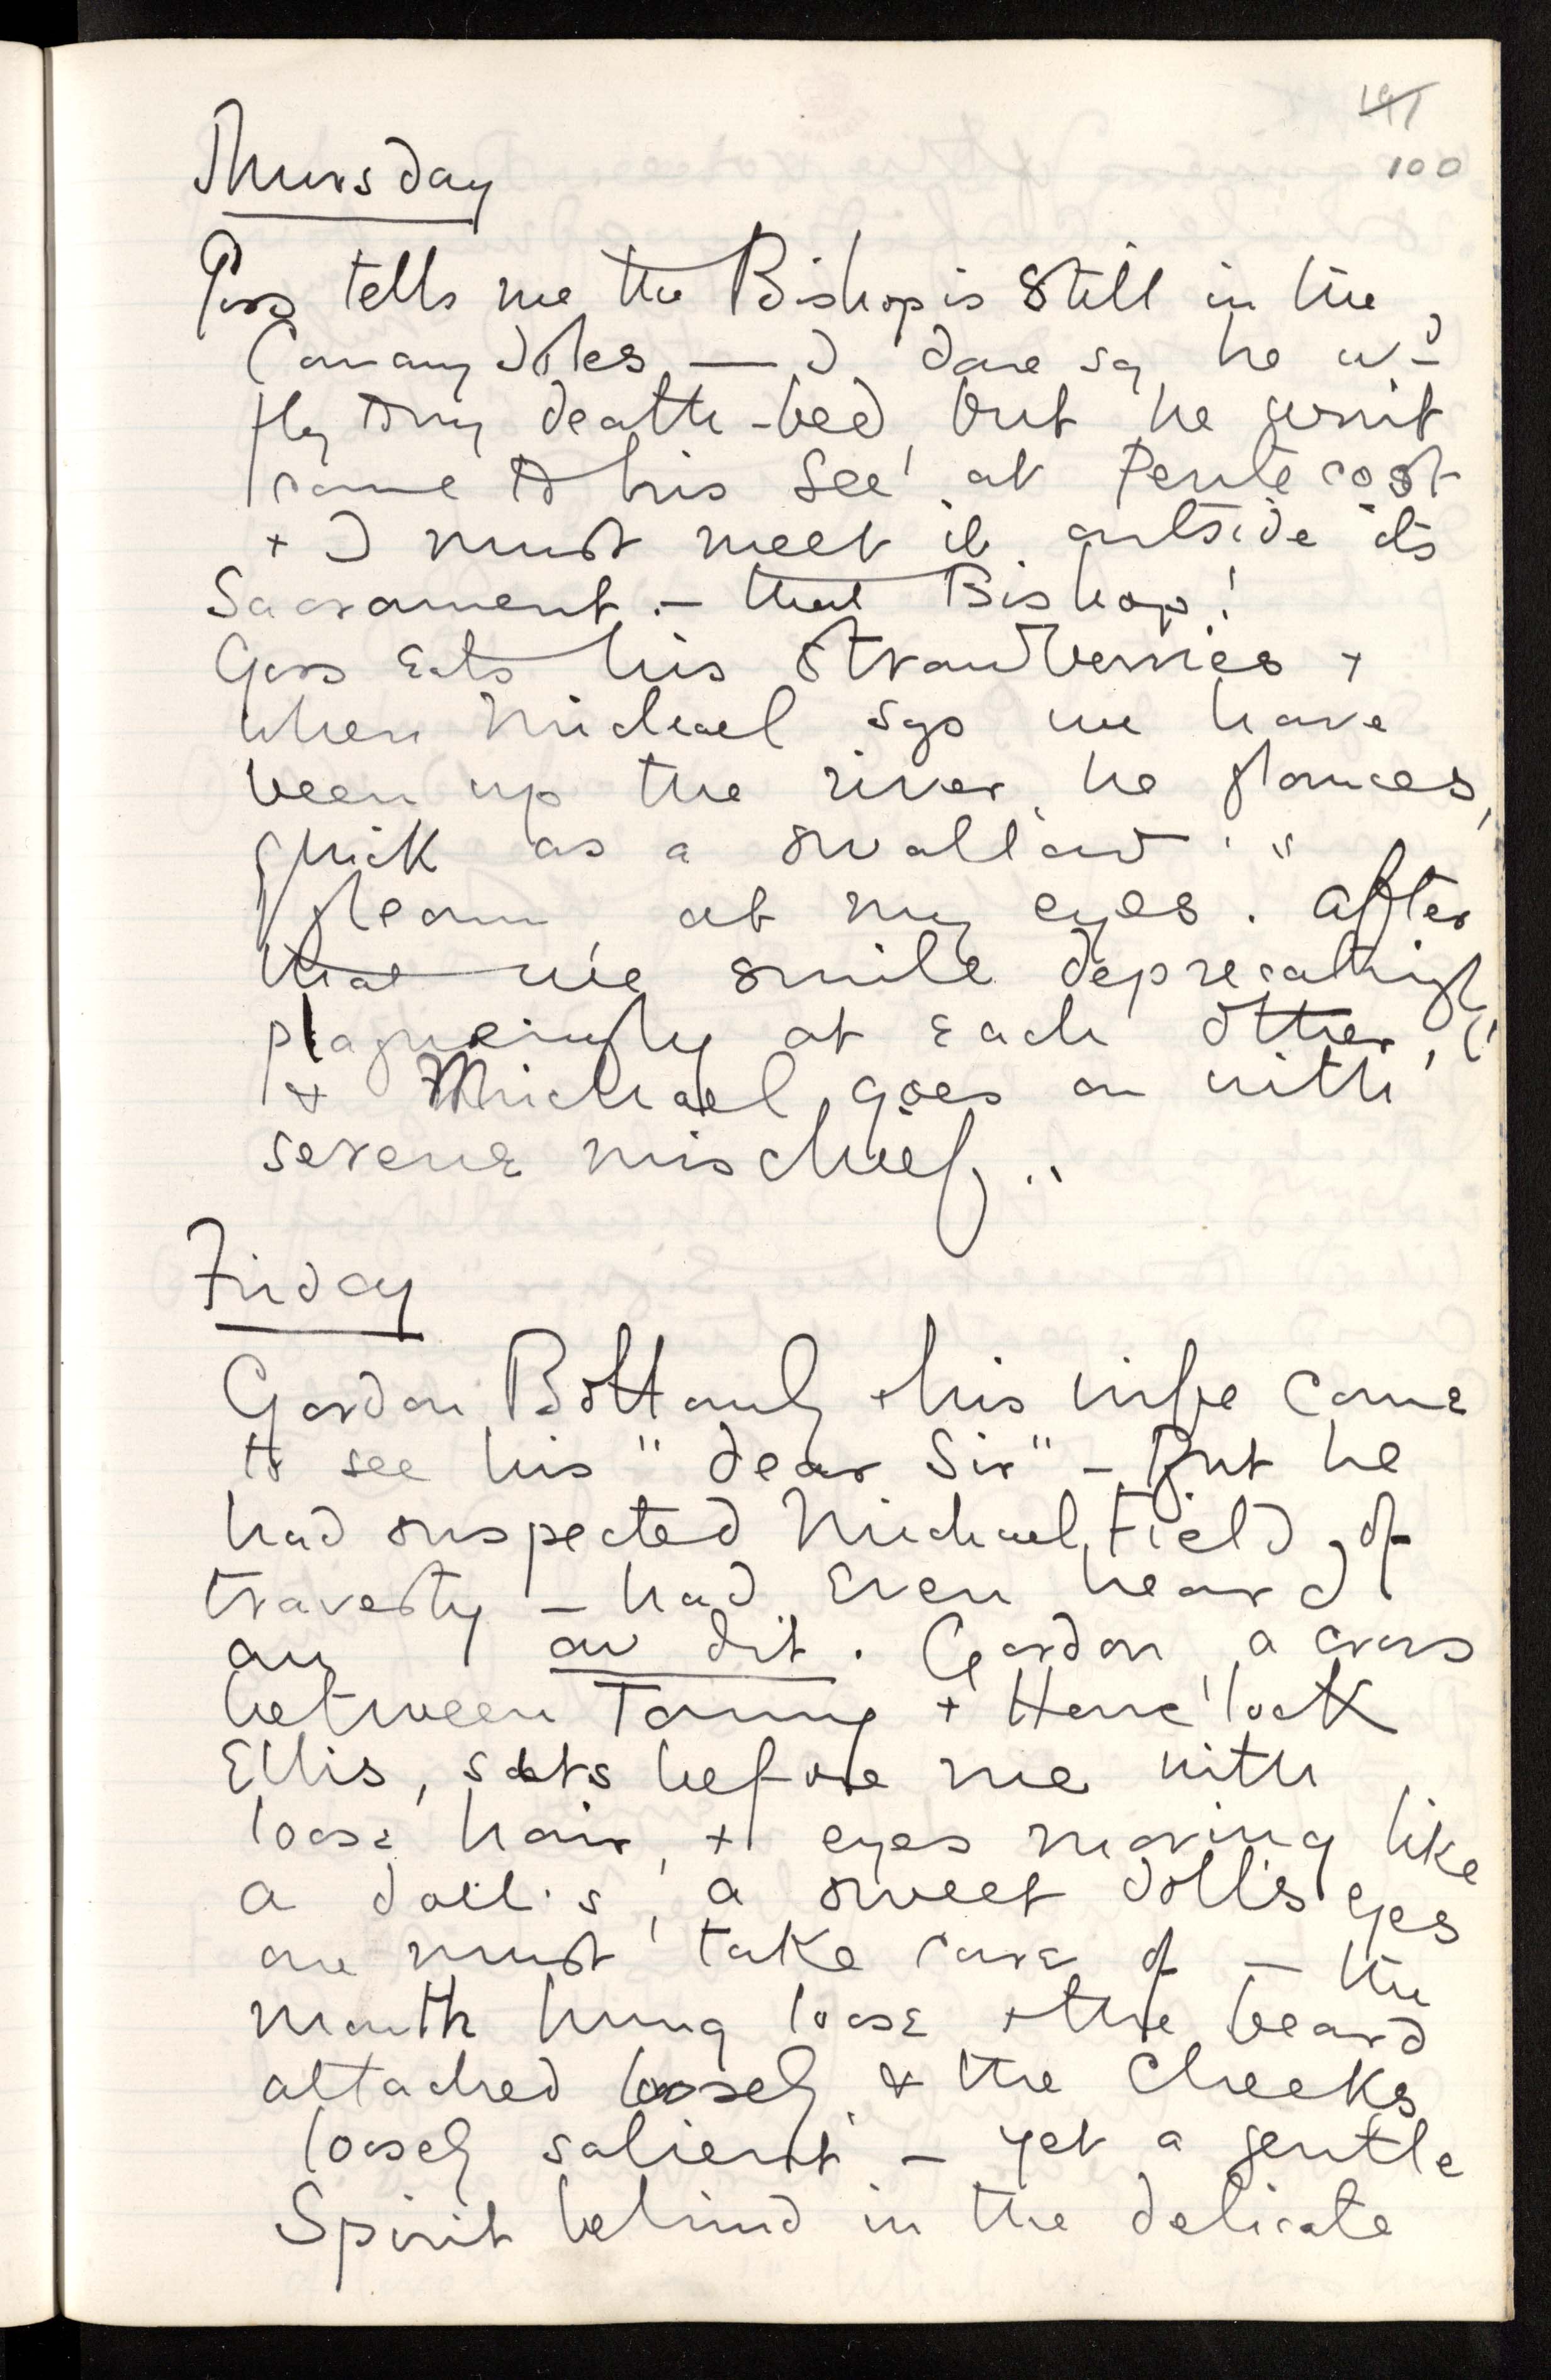 191
100
Thursday
Goss tells me the Bishop is still in the
Canary Isles — I dare say he wd
fly to my death-bed, but he won't
come to his See at Pentecost
+ I must meet it outside its
Sacrament. — that Bishop!
Goss eats his strawberries +
when Michael says we have
been up the river, he glances,
quick as a swallow's
gleam at my eyes. After
that we smile deprecatingly
plagueingly at each other,
+ Michael goes on with
serene mischief..
Friday
Gordon Bottomly + his wife came
to see his "dear Sir" – But he
had suspected Michael Field of
travesty – had even heard
an on dit. Gordon, a cross
between Tommy + Havelock
Ellis, sits before me with
loose hair, + eyes moving like
a doll's, a sweet doll's eyes
one must take care of — the
mouth hung loose + the beard
attached loosely & the cheeks
loosely salient – yet a gentle
Spirit behind in the delicate